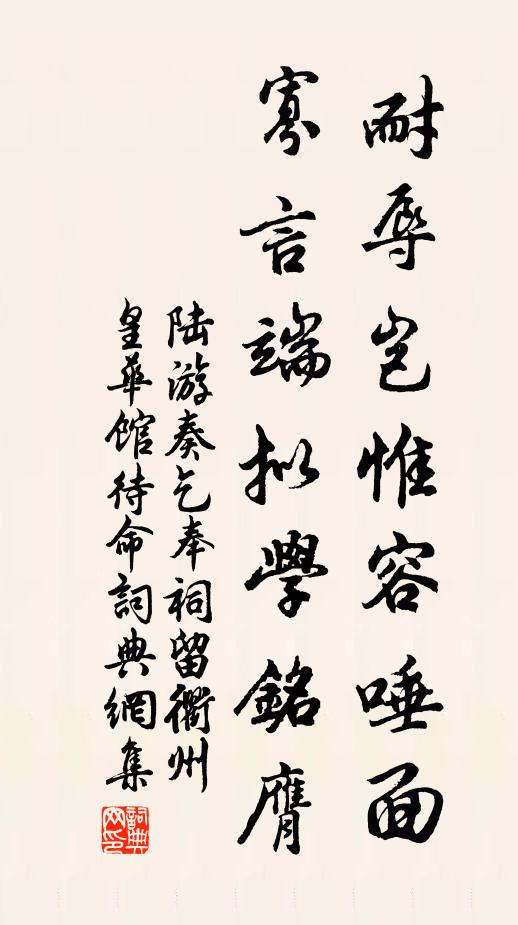 耐辱岂惟容唾面
寡言端拟學銘膺
陆游奏乞奉祠留衢州
皇華館待命詞典網集
詞典
网印